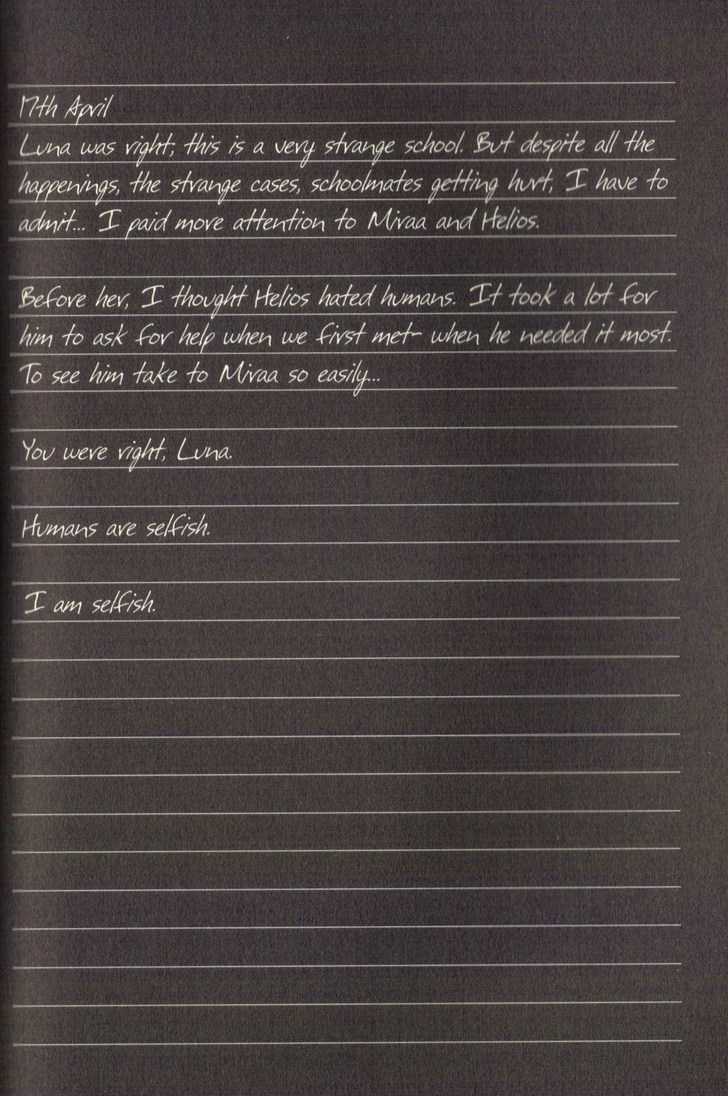 17th April
Luna was right; this is a very strange school. But despite all the
happenings, the strange cases, schoolmates getting hurt, I have to
admit... I paid more attention to Miraa and Helios.
Before her, I thought Helios hated humans. It took a lot for
him to ask for help when we first met- when he needed it most.
To see him take to Miraa so easily...
You were right, Luna.
Humans are selfish.
I am selfish.